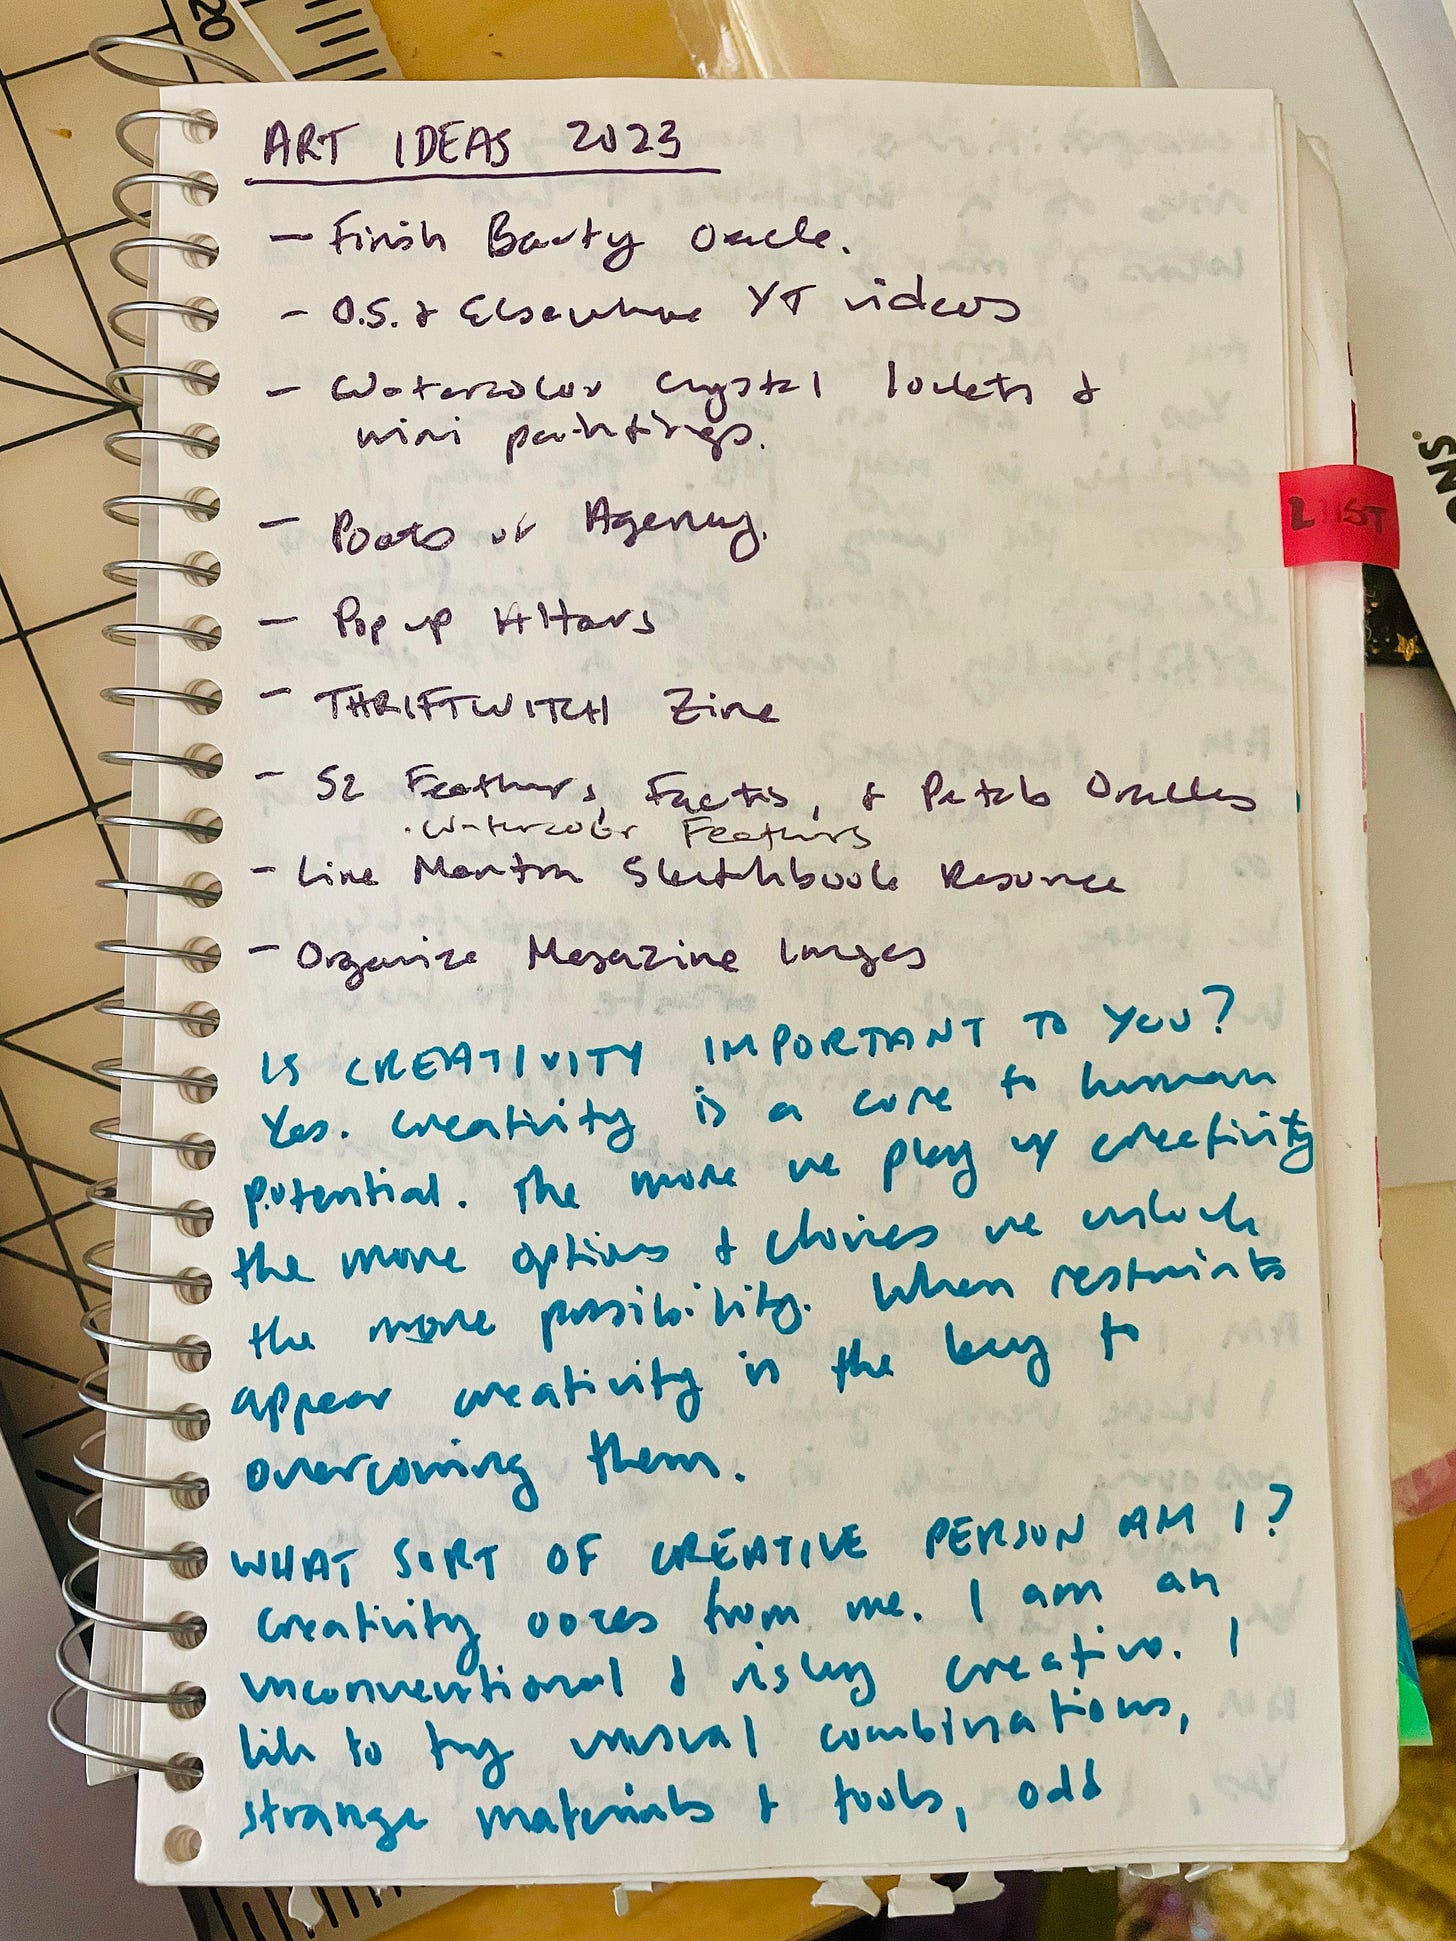 20
ART IDEAS 2023
- Finish Bawty Oracle.
- O.S. & Elsewhere YT videos
- Watercolor Crystal lockets &
mini paintings.
- Poets of Agency.
- Pop up Altars
- THRIFTWITCH Zine
- 52 Feathers, Facets, & Petals Oracles
· Watercolor Feathers
- Line Mantra Sketchbook Resource
- Organize Magazine Images
LIST
IS CREATIVITY IMPORTANT TO YOU?
Yes. Creativity is a core to human
potential. The more we play w/ creativity
the more options & choices we unlock
the more possibility. When restraints
appear creativity is the key to
overcoming them.
WHAT SORT OF CREATIVE PERSON AM I?
Creativity oozes from me. I am an
unconventional & risky creative. I
like to try unusual combinations,
strange materials & tools, odd